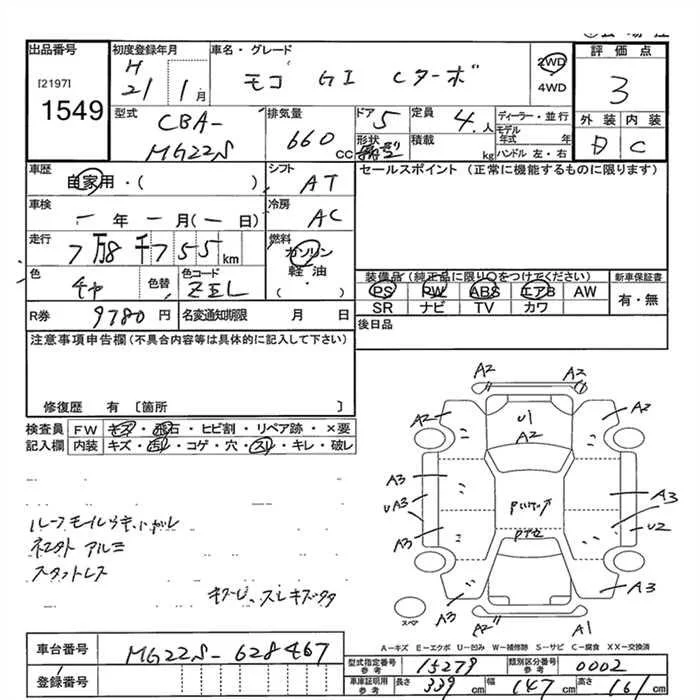 出品番号
[2197]
1549
初度登録年月
H
21 1月
車名・グレード
モコ GI Cターボ
2WD
4WD
評価点
3
外装 内装
D C
型式
CBA-
MG22S
排気量
660 CC
ドア 5
形状
定員
4.人
積載
kg
ディーラー・並行
モデル
年式 年
ハンドル 左・右
車歴
自家用・( )
シフト
AT
セールスポイント (正常に機能するものに限ります)
車検
- 年 - 月(- 日)
冷房
AC
走行
7万8千755km
燃料
ガソリン
軽油・
( )
色
チャ
色替
色コード
ZEL
装備品(純正品に限り○をつけてください)
PS PW ABS エアB AW
SR ナビ TV カワ
新車保証書
有・無
R券 9780円
名変通知期限 月 日
後日品
注意事項申告欄(不具合内容等は具体的に記入して下さい)
修復歴 有 〔箇所 〕
検査員 FW キズ・飛石・ヒビ割・リペア跡・×要
記入欄 内装 キズ・汚レ・コゲ・穴・スレ・キレ・破レ
A2 A2
A2 U1 A2
A2
A3
UA3 A3
A3 U2
A3 A3
A2 A1
スペア
ルーフモールウキ、ハガレ
スタットレス
A-キズ E-エクボ U-凹み W-補修跡 S-サビ C-腐食 XX-交換済
車台番号 MG22S-628467
登録番号
型式指定番号
参考
15279
類別区分番号
参考
0002
車庫証明用
参考
長さ 339cm 幅 147cm 高さ 161cm